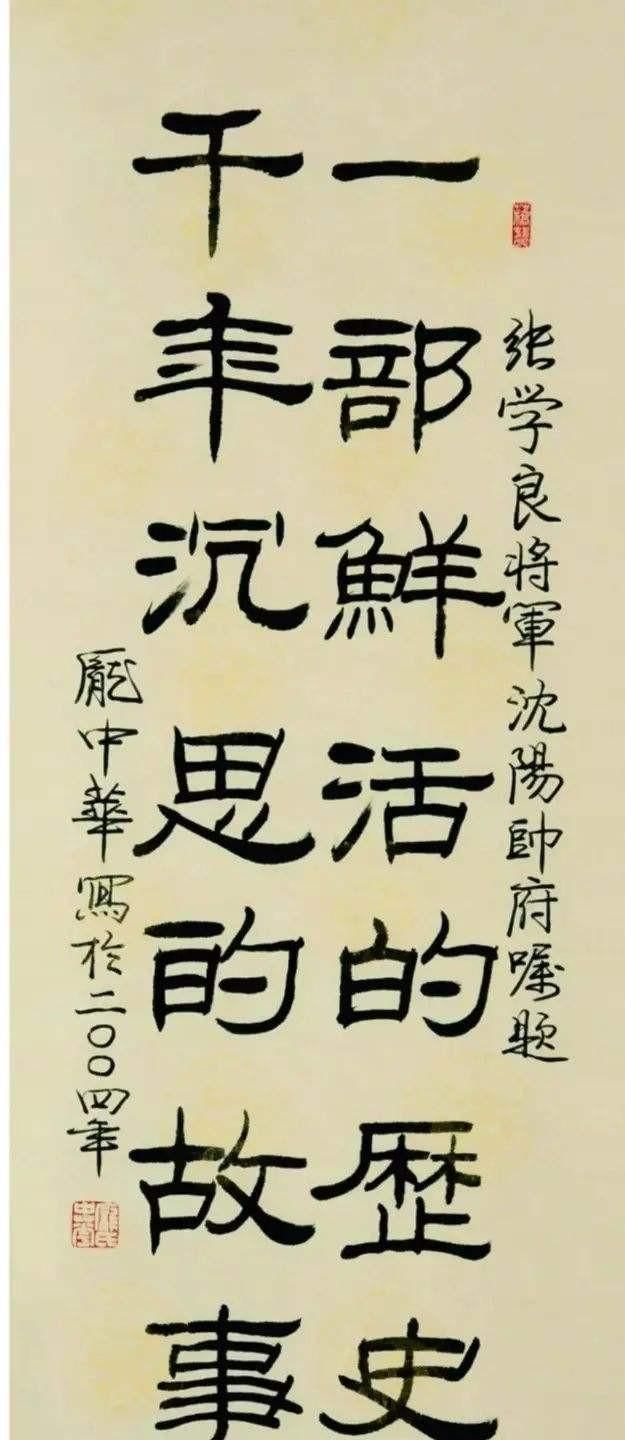 张学良将軍沈陽帥府嘱题
一部鮮活的歷史
千年沉思的故事
龐中華寫於二〇〇四年